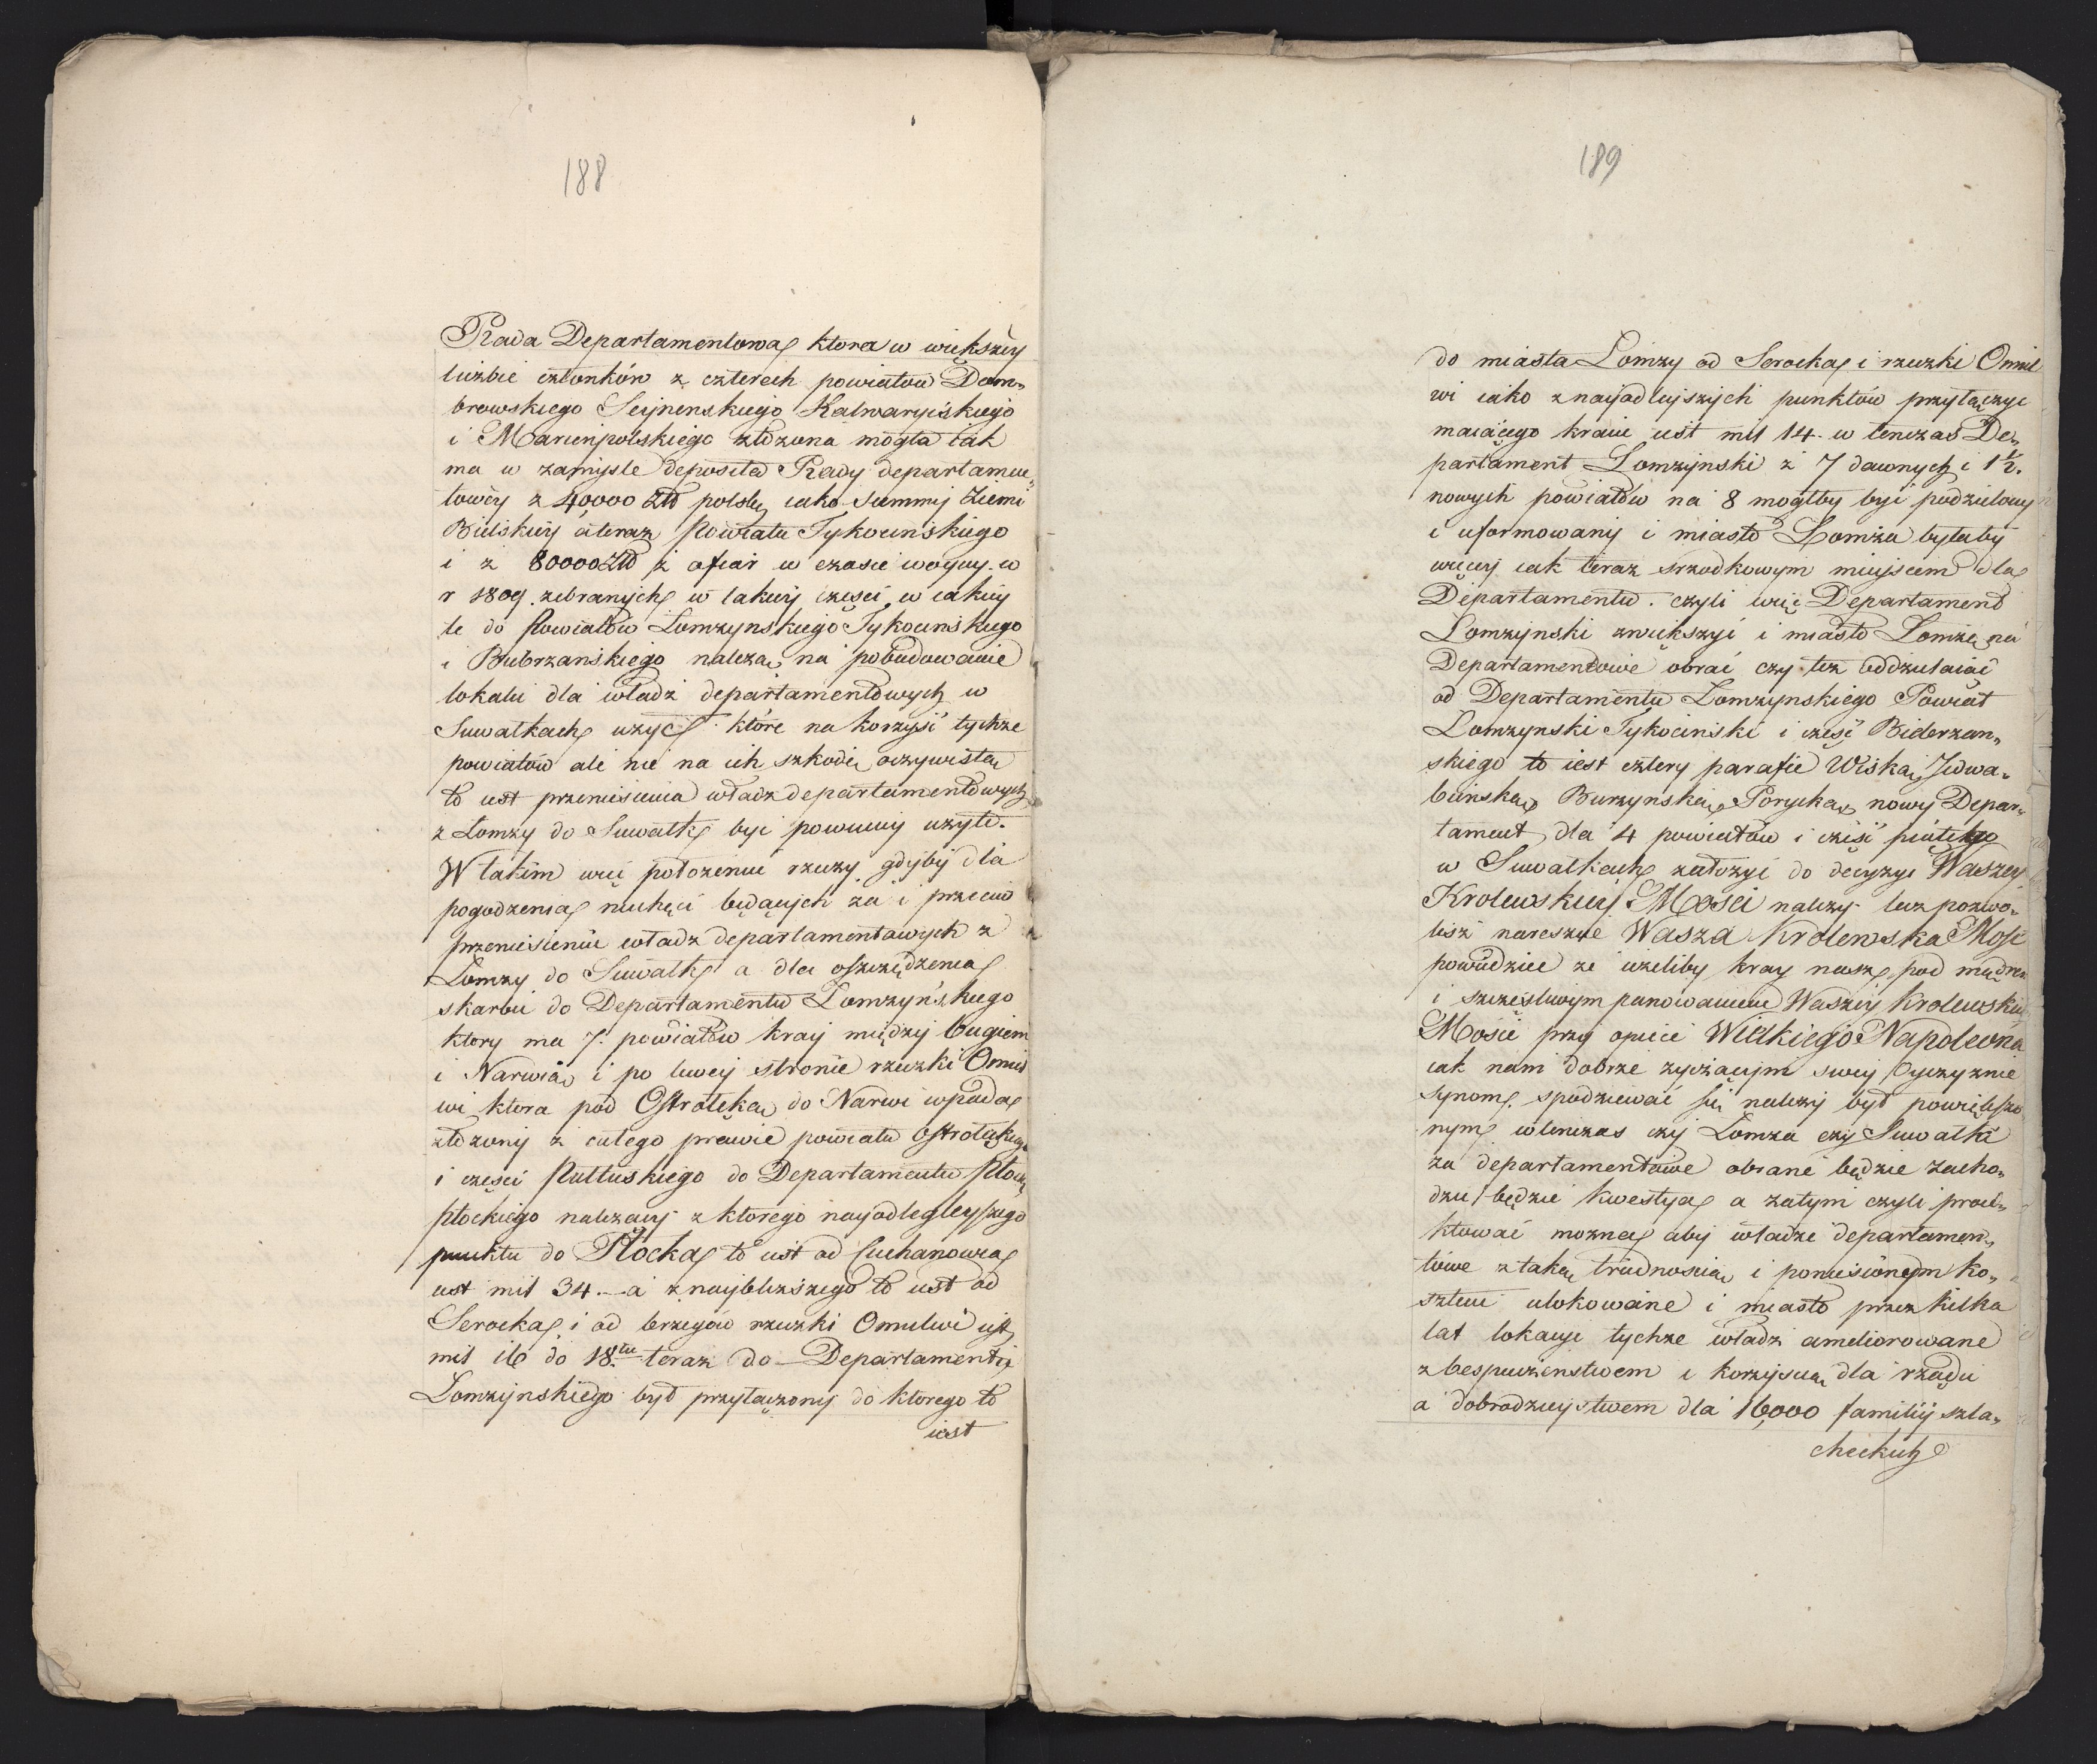 188
Rada Departamentowa ktora w większey
liczbie członków z czterech powiatow Dom„
browskiego Seynenskiego Kalwaryiskiego
i Maryenpolskiego złożona mogła tak
ma w zamysle deposita Rady departamen„
towéy z 40,000 Złł polsk iako Summy Ziemi
Bielskiey a teraz Powiatu Tykocinskiego
i z 80000 Złł z ofiar w czasie woyny w
r 1809. zebranych w takiey częsci w iakiey
te do Powiatow Lomzynskiego Tykocinskiego
i Biebrzanskiego należą na pobudowanie
lokalu dla władz departamentowych w
Suwałkach użyć które na korzyść tychze
powiatów ale nie na ich szkodę oczywistą
to iest przeniesienia władz departamentowych
z Łomzy do Suwałk byc powinny użyte.
W takim więc położeniu rzeczy gdyby dla
pogodzenia niechęci będących za i przeciw
przeniesieniu władz departamentowych z
Łomzy do Suwałk a dla oszczędzenia
skarbu do Departamentu Lomzyńskiego
ktory ma 7. powiatow kray między bugiem
i Narwią i po lewey stronie rzeczki Omul
wi ktora pod Ostrołęką do Narwi wpada
złożony z całego prawie powiatu Ostrołękiego
i częsci Pułtuskiego do Departamentu Płock
płockiego należący z ktorego nayodlegleyszego
punktu do Płocka to iest od Ciechanowca
iest mil 34.— a z nayblizszego to iest od
Serocka i od brzegów rzeczki Omulwi iest
mil 16 do 18.tu teraz do Departamentu
Lomzynskiego był przyłączony do ktorego to
iest
189
do miasta Lomzy od Serocka i rzeczki Omul
wi iako z nayodleyszych punktów przyłączyc
maiącego kraiu iest mil 14. w tenczas De„
partament Lomzynski z 7 dawnych i 1½.
nowych powiatów na 8 mogłby być podzielony
i uformowany i miasto Łomza byłaby
więcey iak teraz srzodkowym mieyscem dla
Departamentu. czyli więc Departament
Lomzynski zwiększyć i miasto Lomzę na
Departamentowe obrać czy tez oddzielaiąc
od Departamentu Lomzynskiego Powiat
Lomzynski Tykocinski i część Biebrzan„
skiego to iest cztery parafie Wiską, Jedwa„
binską Burzynską, Porycką nowy Depar„
tament dla 4 powiatów i część piątego
w Suwałkach załozyc do decyzyi Waszey
Krolewskiey Mosci należy lecz pozwo„
lisz nareszcie Wasza Krolewska Mość
powiedziec ze iezeliby kray nasz pod mądrem
i szczęśliwym panowaniem Waszéy Krolewskiey
Mości przy opiece Wielkiego Napoleona
iak nam dobrze życzącym swey Oyczyznie
Synom spodziewać się należy był powiększo
nym wtenczas czy Lomza czy Suwałki
za departamentowe obrane będzie zacho„
dzić będzie kwestya a zatym czyli proie„
ktować mozna aby władze departamen„
towe z taką trudnoscią i poniesionem ko„
sztem ulokowane i miasto przez kilka
lat lokacyi tychze władz ameliorowane
z bespieczenstwem i korzyscią dla rządu
a dobrodzieystwem dla 16,000 familiy szla„
checkich